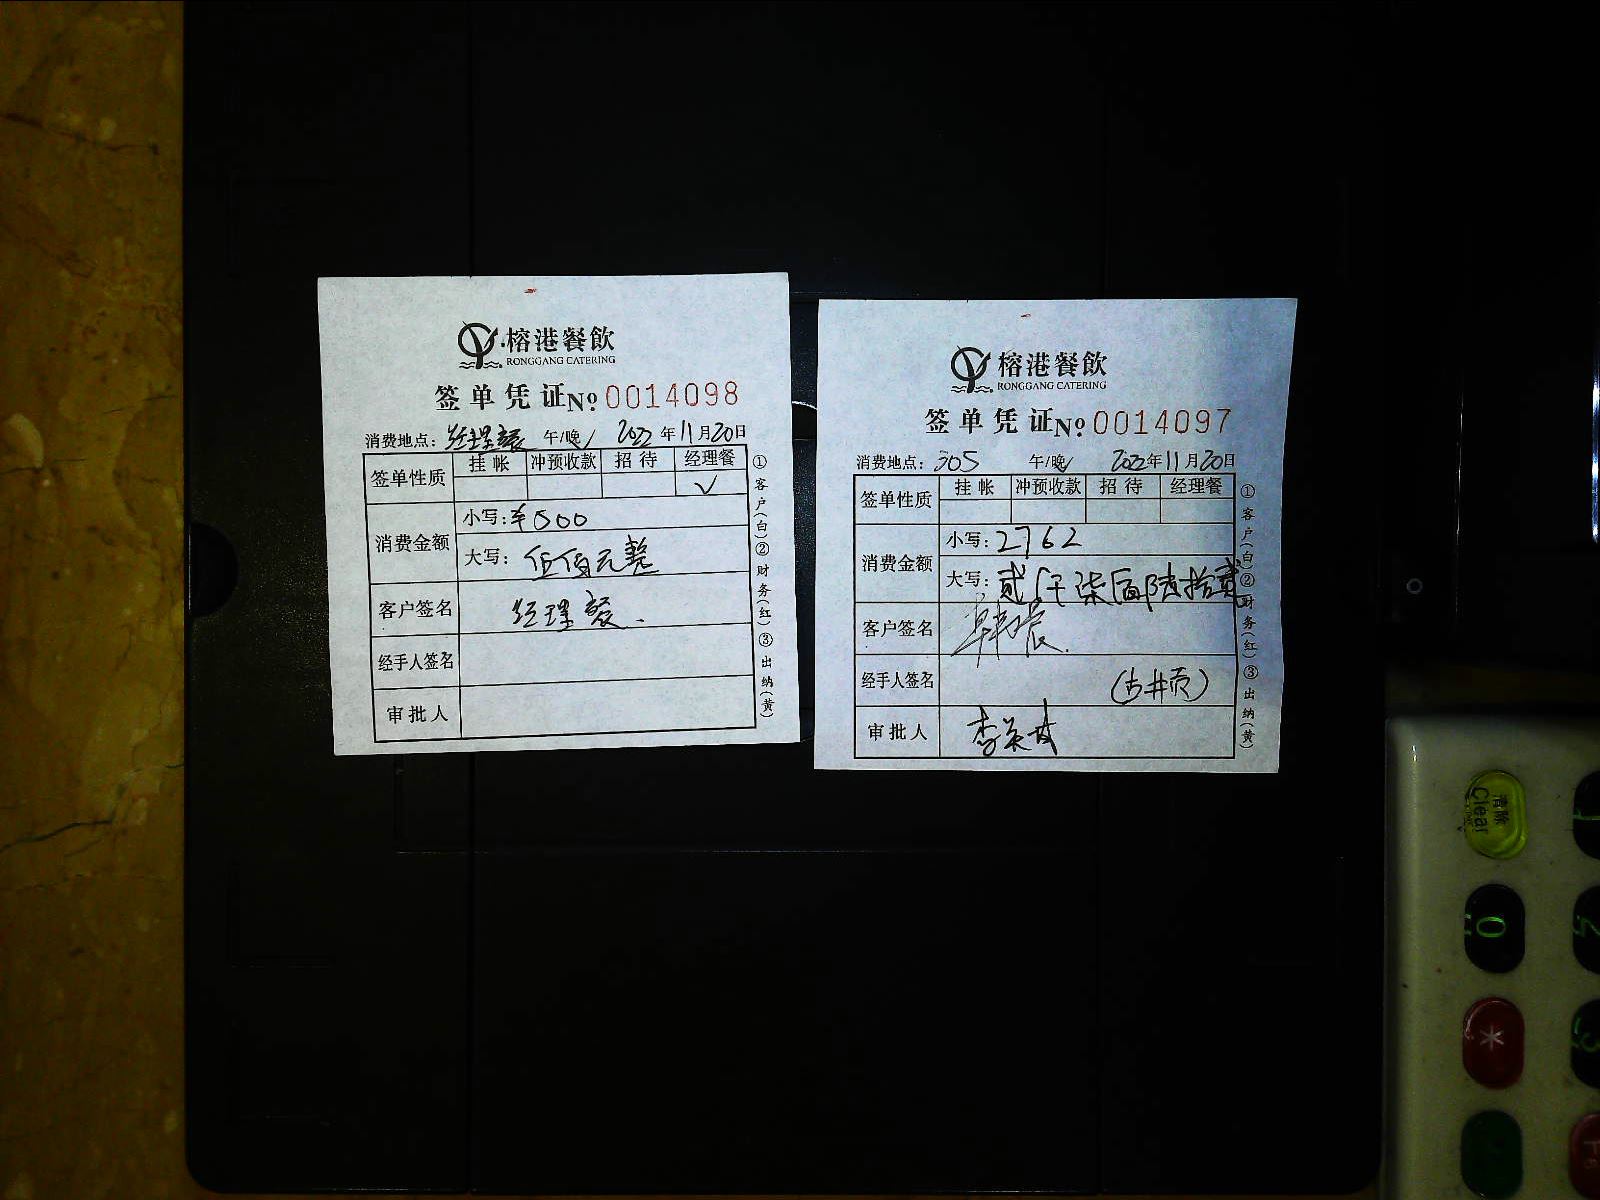 榕港餐飲
RONGGANG CATERING
签单凭证 No 0014098
消费地点: 经理餐 午/晚 2022年11月20日
签单性质 挂帐 冲预收款 招待 经理餐
√
消费金额 小写: ¥500
大写: 伍佰元整
客户签名 经理餐.
经手人签名
审批人
①客户(白)②财务(红)③出纳(黄)
榕港餐飲
RONGGANG CATERING
签单凭证 No 0014097
消费地点: 305 午/晚 2022年11月20日
签单性质 挂帐 冲预收款 招待 经理餐
消费金额 小写: 2762
大写: 贰仟柒佰陆拾贰
客户签名
经手人签名
审批人
①客户(白)②财务(红)③出纳(黄)
清除
Clear
0
*